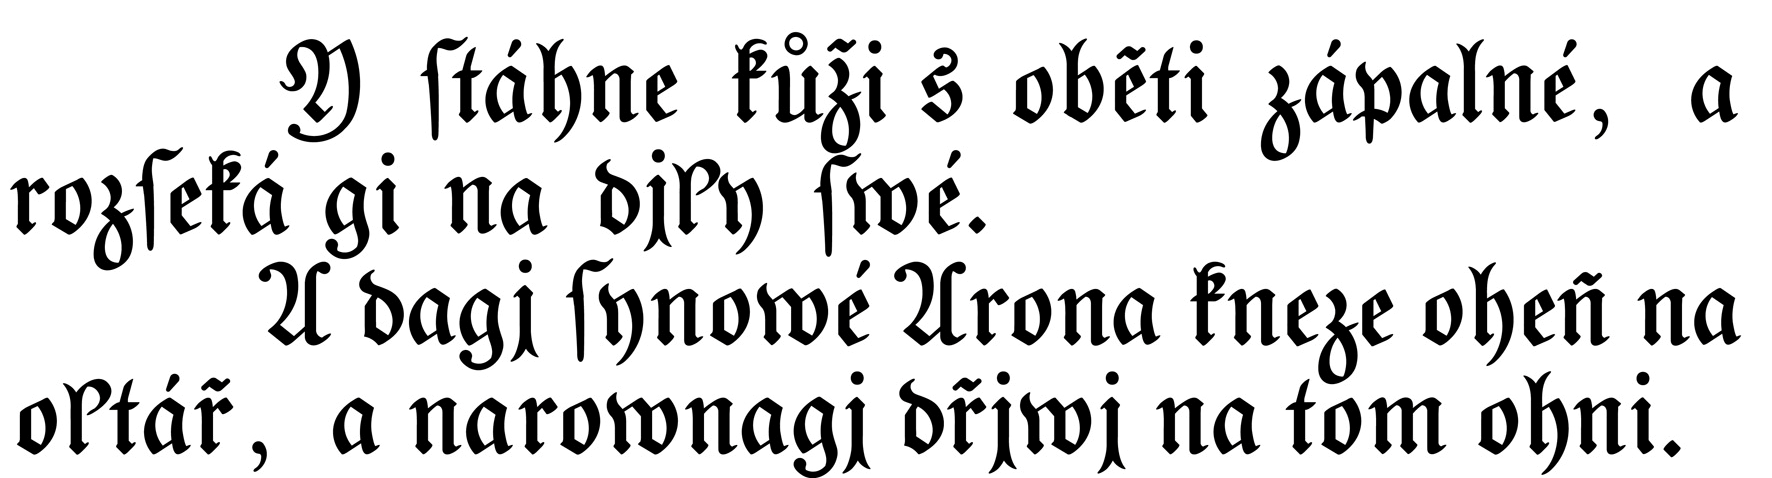 Y ſtáhne kůz̃i s̉ obẽti zápalné, a
rozſeká gi na djꝉy ſwé.
A dagj ſynowé Arona kneze oheñ na
oꝉtár̃, a narownagj dr̃jwj na tom ohni.